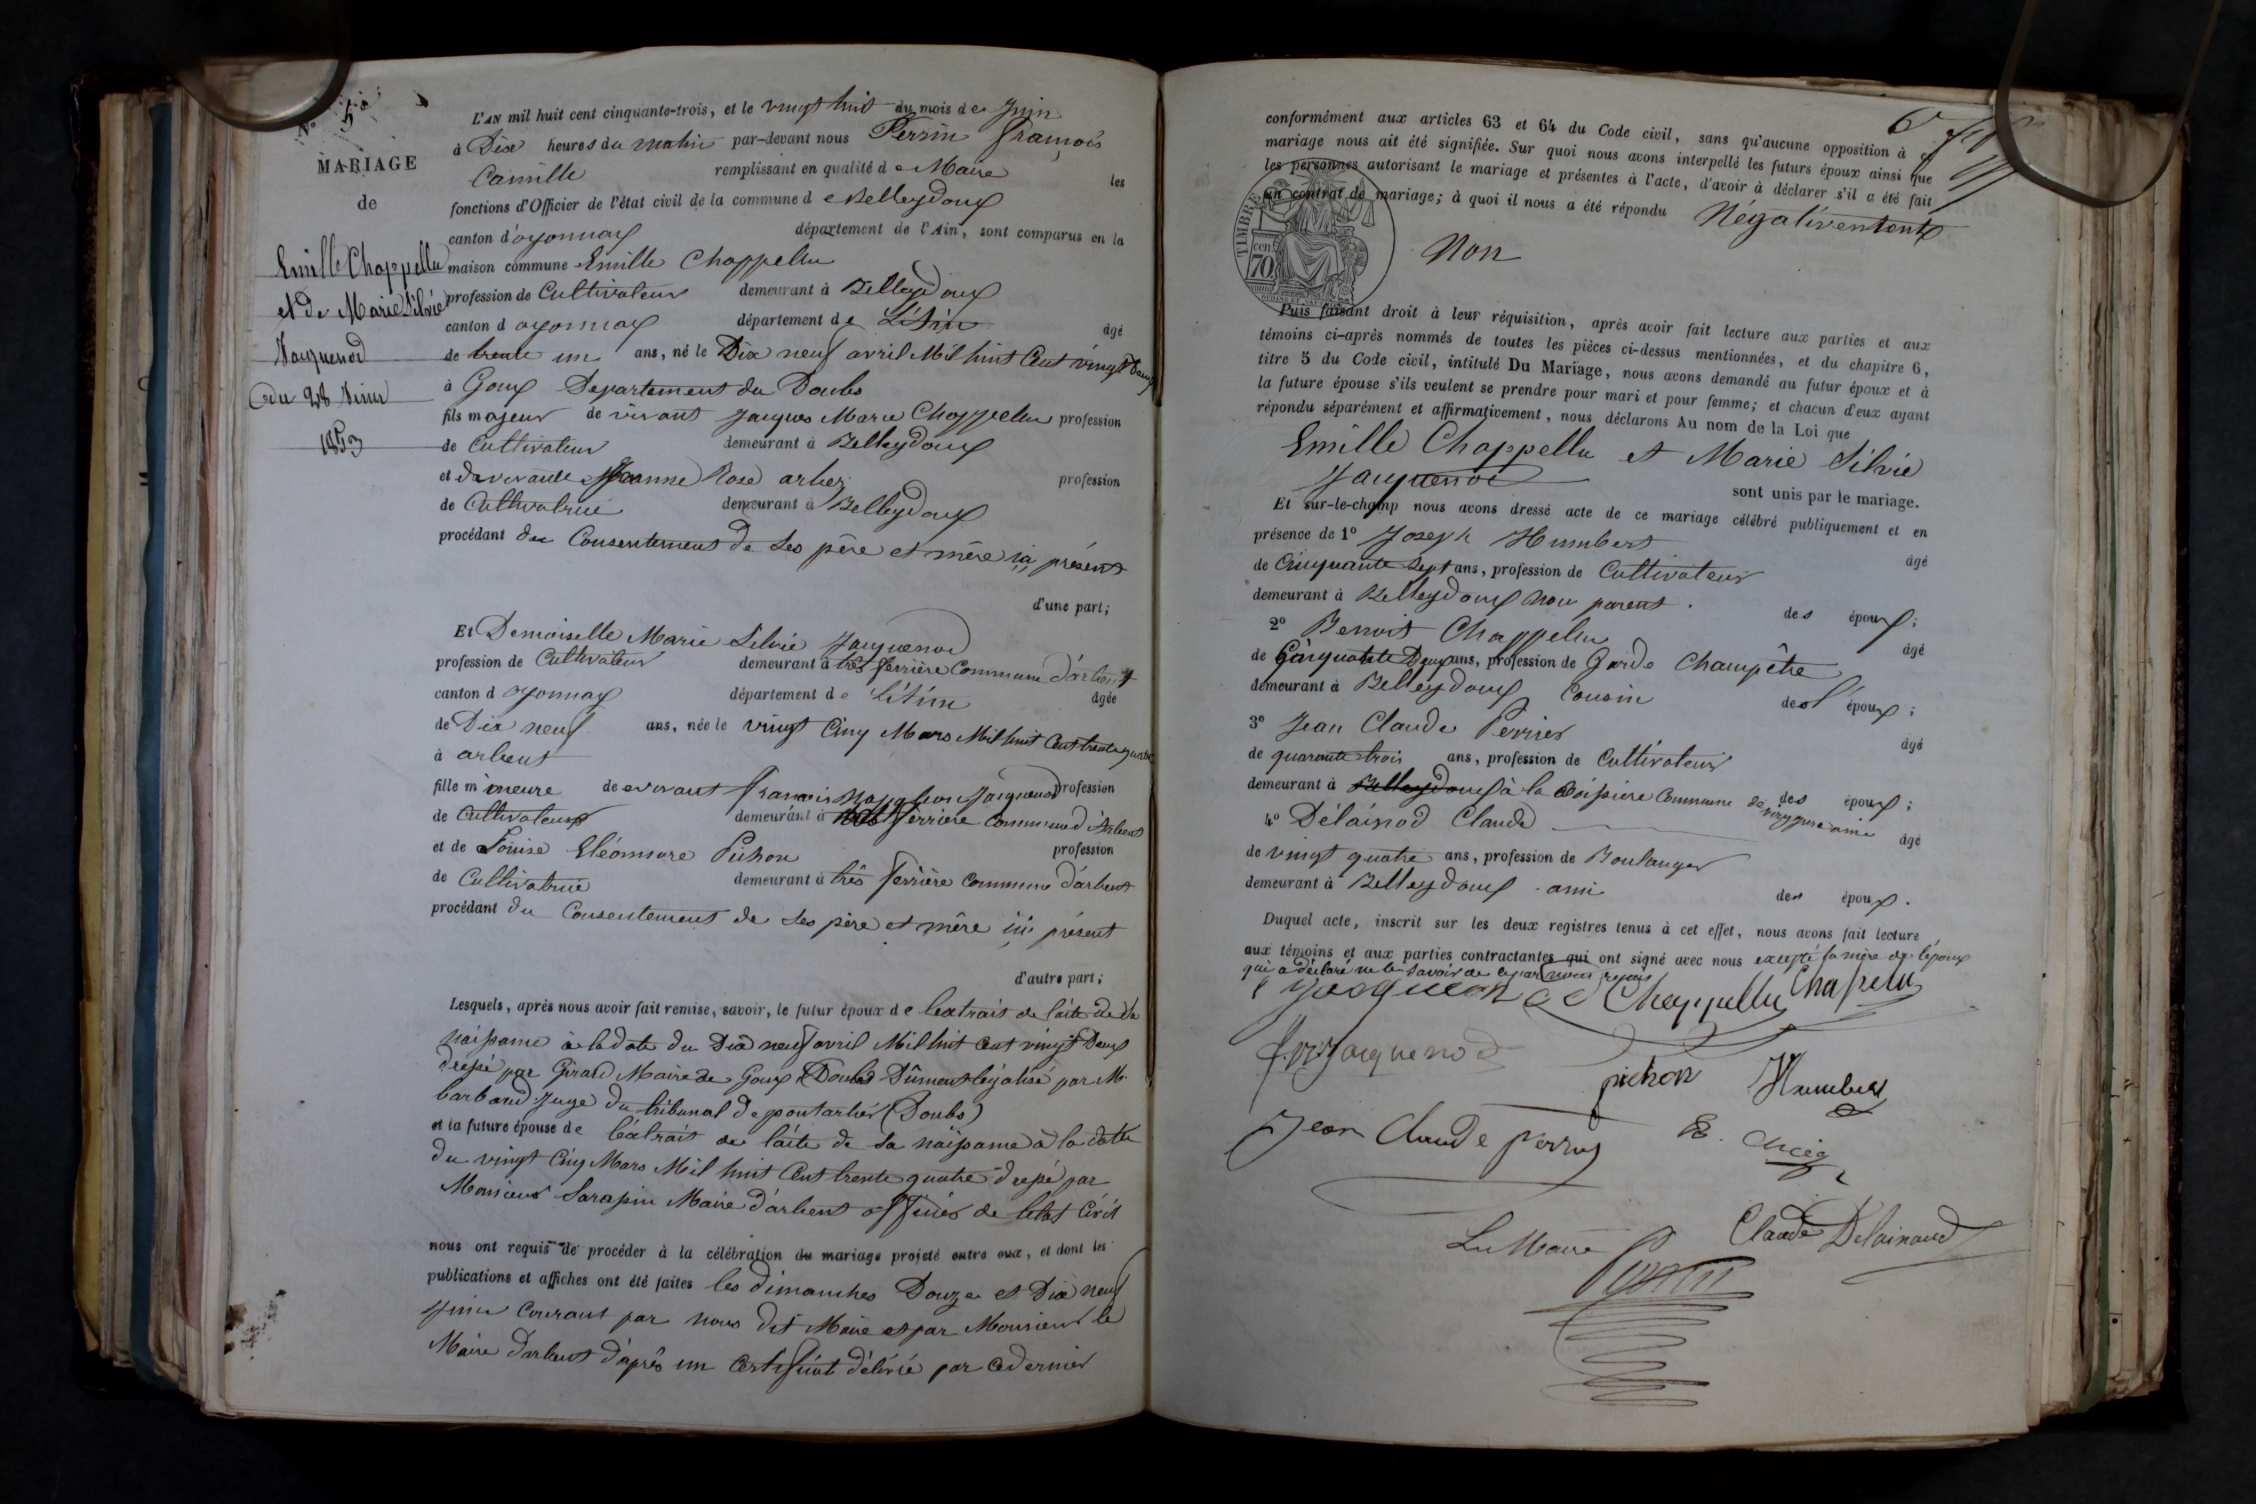 N° 5
MARIAGE
de
Emille Chappellu
et de Marie Silvie
Jacquenod
du 28 Juin
1853
L'AN mil huit cent cinquante-trois, et le vingt huit du mois de Juin
à Dix heures du matin par-devant nous Perrin François
Camille remplissant en qualité de Maire les
fonctions d'Officier de l'état civil de la commune de Belleydoux
canton d'oyonnax département de l'Ain, sont comparus en la
maison commune Emille Chappellu
profession de Cultivateur demeurant à Belleydoux
canton d oyonnax département de L'Ain âgé
de trente un ans, né le Dix neuf avril Mil huit Cent vingt Deux
à Goux Departement du Doubs
fils majeur de vivant Jacques Marie Chappellu profession
de Cultivateur demeurant à Belleydoux
et de vivante Jeanne Rose arbez profession
de Cultivatrice demeurant à Belleydoux
procédant du Consentement de ses père et mère ici présent
d'une part;
Et Demoiselle Marie Silvie Jacquenod
profession de Cultivateur demeurant à très ferrière Commune d'arbent
canton d oyonnax département de L'Ain âgée
de Dix neuf ans, née le vingt Cinq Mars Mil huit Cent trente quatre
à arbent
fille mineure de vivant francois Napoleon Jacquenod profession
de Cultivateur demeurant à très ferrière Commune d'Arbent
et de Louise Eléonnore Pichon profession
de Cultivatrice demeurant à très ferrière Commune d'arbent
procédant du Consentement de ses père et mère ici présent
d'autre part;
Lesquels, après nous avoir fait remise, savoir, le futur époux de lextrait de l'acte de sa
naissance à la date du Dix neuf avril Mil huit Cent vingt Deux
dressé par Girard Maire de Goux (Doubs) Dûment légalisé par M.
barband Juge du tribunal de pontarlier (Doubs)
et la future épouse de l'extrait de l'acte de sa naissance à la date
du vingt Cinq Mars Mil huit Cent trente quatre dressé par
Monsieur Sarapin Maire d'arbent officier de l'etat Civil
nous ont requis de procéder à la célébration du mariage projeté entre eux, et dont les
publications et affiches ont été faites les dimanches Douze et Dix neuf
Juin Courant par nous dit Maire et par Monsieur le
Maire d'arbent d'après un Certificat délivré par ce dernier
6
conformément aux articles 63 et 64 du Code civil, sans qu'aucune opposition à ce
mariage nous ait été signifiée. Sur quoi nous avons interpellé les futurs époux ainsi que
les personnes autorisant le mariage et présentes à l'acte, d'avoir à déclarer s'il a été fait
un contrat de mariage; à quoi il nous a été répondu Négativement
Non
TIMBRE
70 cen
Puis faisant droit à leur réquisition, après avoir fait lecture aux parties et aux
témoins ci-après nommés de toutes les pièces ci-dessus mentionnées, et du chapitre 6,
titre 5 du Code civil, intitulé Du Mariage, nous avons demandé au futur époux et à
la future épouse s'ils veulent se prendre pour mari et pour femme; et chacun d'eux ayant
répondu séparément et affirmativement, nous déclarons Au nom de la Loi que
Emille Chappellu et Marie Silvie
Jacquenod sont unis par le mariage.
Et sur-le-champ nous avons dressé acte de ce mariage célébré publiquement et en
présence de 1° Joseph Humbert âgé
de Cinquante Sept ans, profession de Cultivateur
demeurant à Belleydoux Non parent des époux;
2° Benoit Chappellu âgé
de Cinquante Deux ans, profession de Garde Champêtre
demeurant à Belleydoux Cousin de l'époux;
3° Jean Claude Perrier âgé
de quarante trois ans, profession de Cultivateur
demeurant à Belleydoux à la Commune de ami des époux;
4° Délainod Claude âgé
de vingt quatre ans, profession de Boulanger
demeurant à Belleydoux ami des époux.
Duquel acte, inscrit sur les deux registres tenus à cet effet, nous avons fait lecture
aux témoins et aux parties contractantes qui ont signé avec nous excepté la mère de l'époux
qui a déclaré ne le savoir de ce par nous requis
Jacquenod Chappellu Chapelu
Jacquenod
pichon Humbert
Jean Claude perrier
Claude Delainaud
Le Maire
Perrin